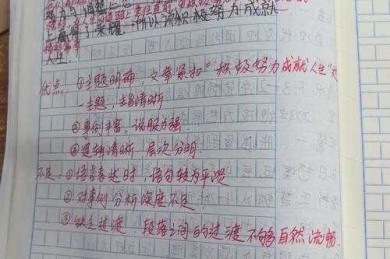 上赢得了荣耀，所以说积极努力成就
人生！
优点：①主题明确 文章紧扣“积极努力成就人生”这
一主题，主旨清晰
②事例丰富，说服力强
③逻辑清晰 层次分明
不足：①语言表达时 语句较为平淡
②对事例分析深度不足
③缺乏过渡 段落之间的过渡不够自然流畅